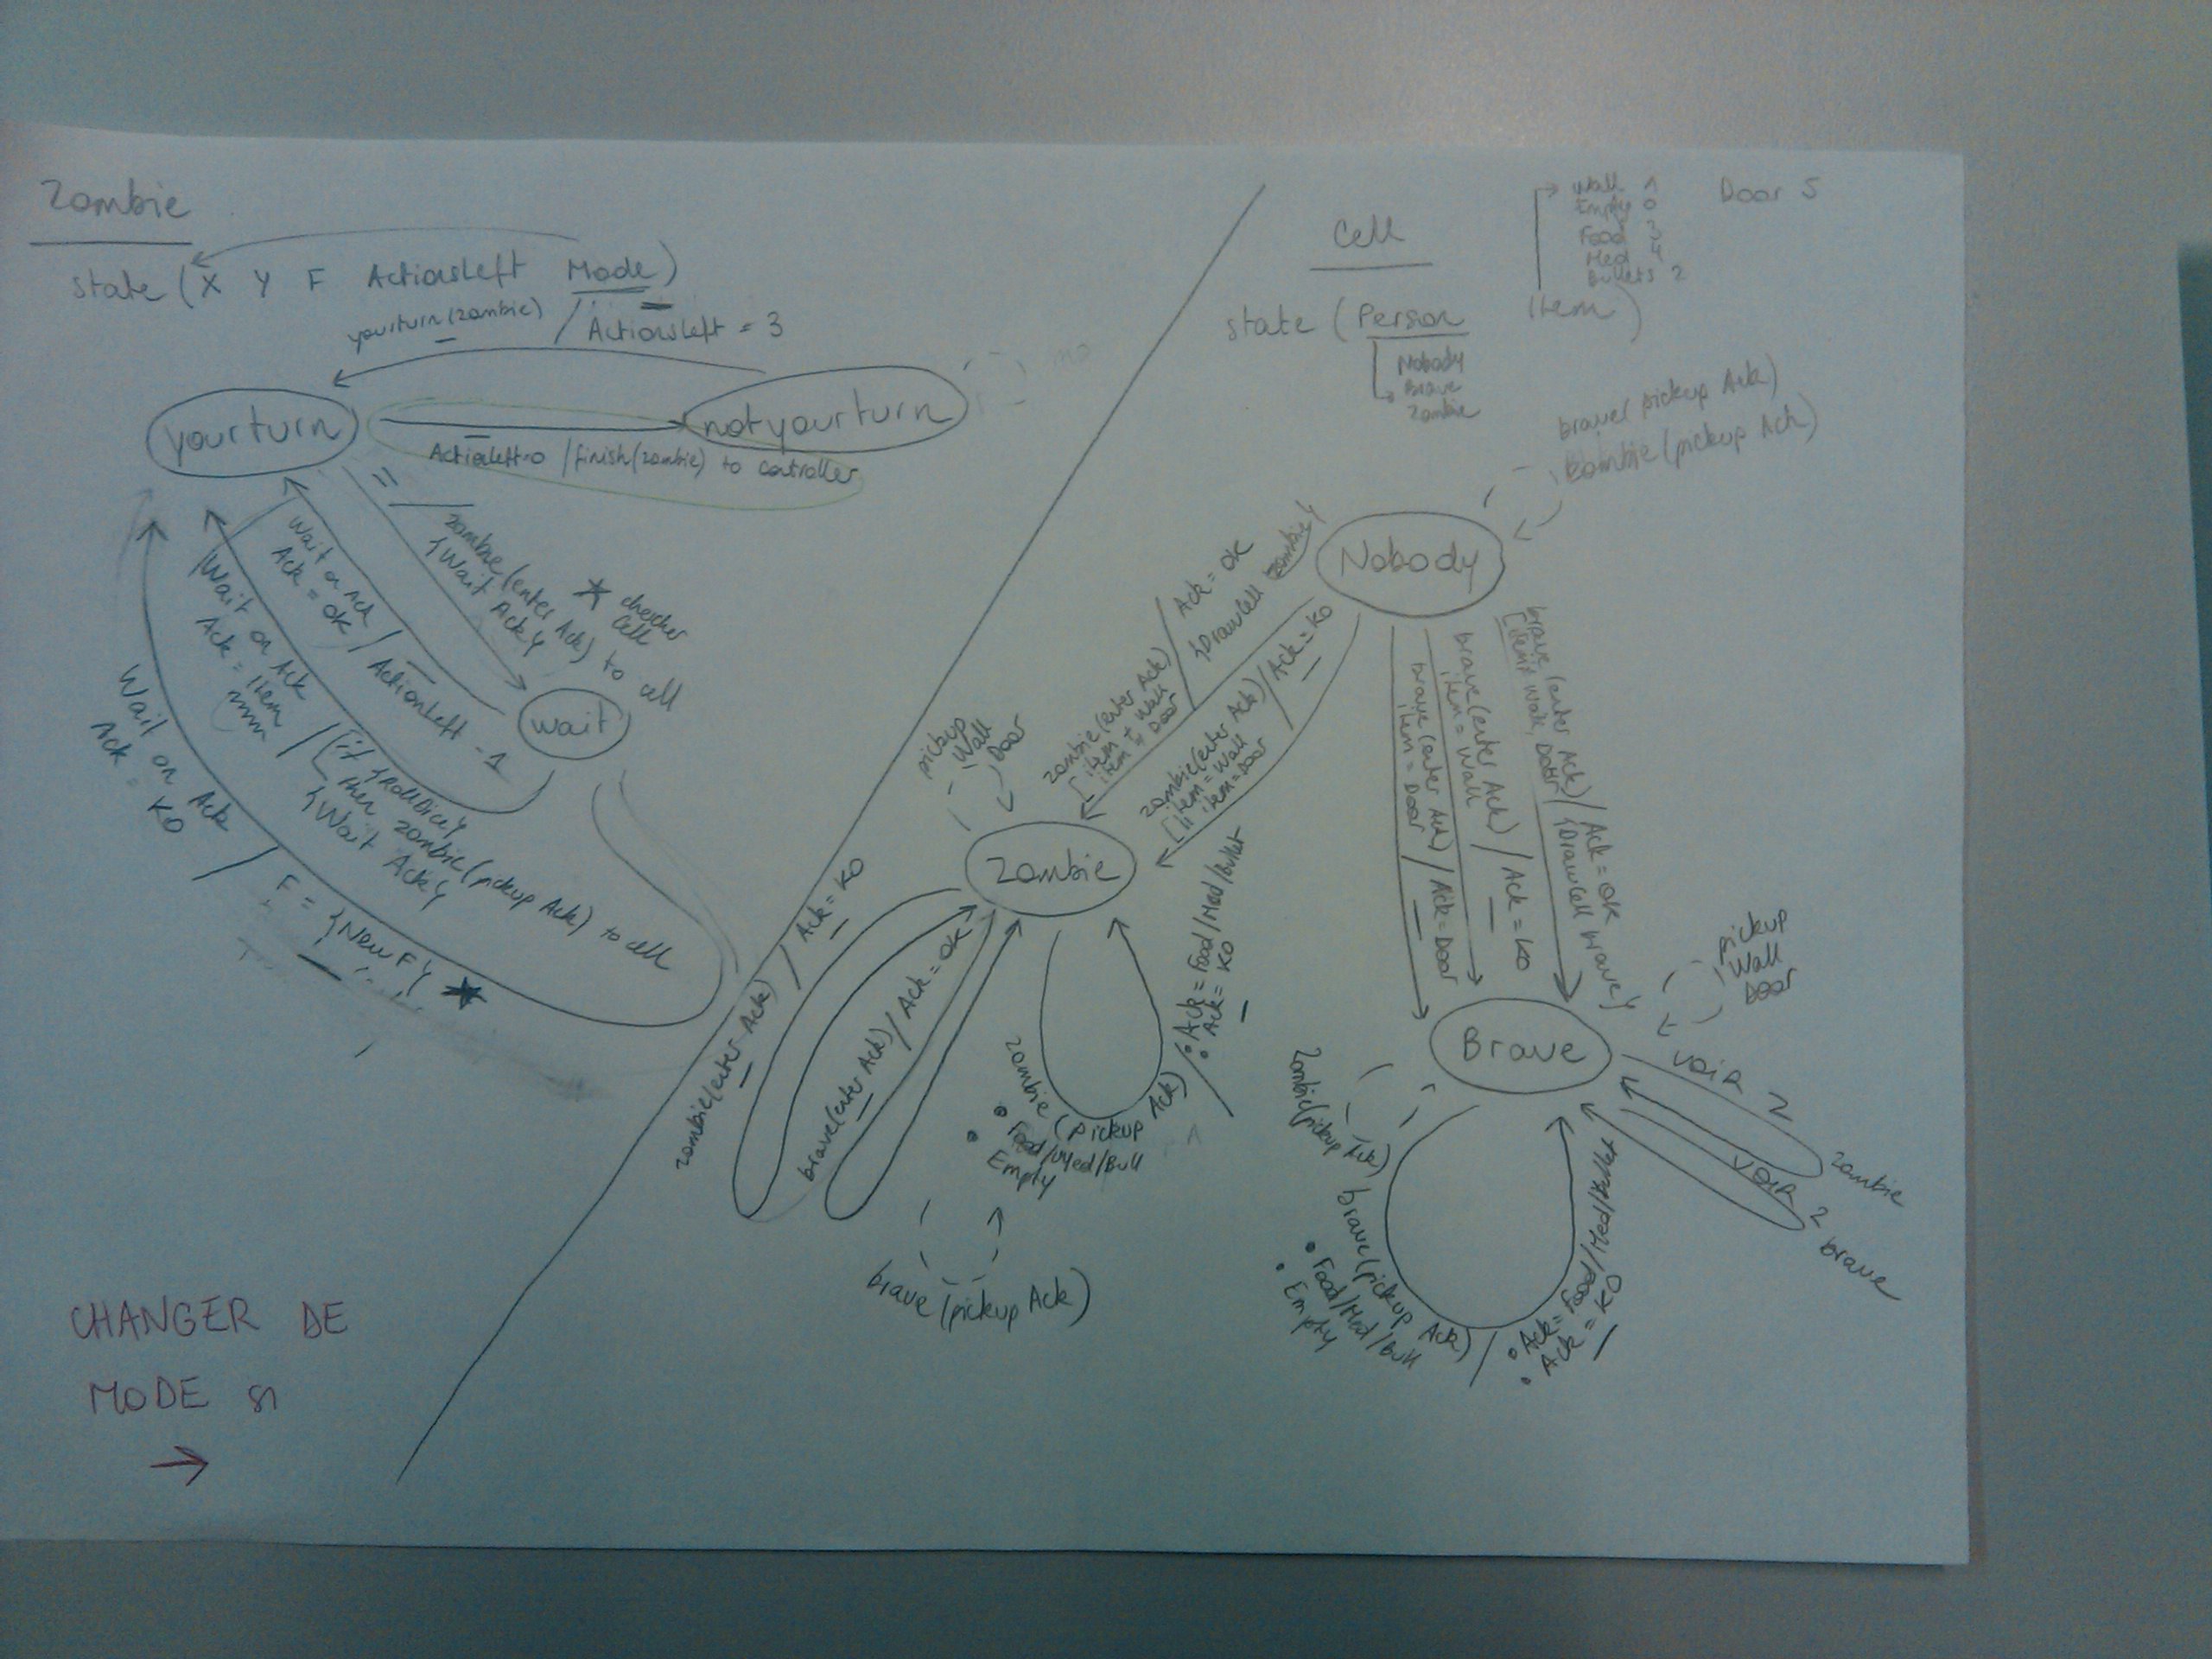 Zombie
state (X Y F ActionsLeft Mode)
yourturn(zombie) / ActionsLeft = 3
yourturn
notyourturn
ActionsLeft=0 / finish(zombie) to controller
zombie(enter Ack) to cell
{Wait Ack}
* chercher
cell
wait
Wait on Ack
Ack = OK / ActionLeft - 1
Wait on Ack
Ack = item
/ [if {RollDice}
then zombie(pickup Ack) to cell
{Wait Ack}
Wait on Ack
Ack = KO
/ F = {NewF} *
CHANGER DE
MODE si
→
Cell
state (Person Item)
Nobody
Brave
Zombie
Wall 1
Empty 0
Food 3
Med 4
Bullets 2
Door 5
brave(pickup Ack)
zombie(pickup Ack)
Nobody
zombie(enter Ack) / Ack = OK
item ≠ Wall
item ≠ Door
{DrawCell zombie}
zombie(enter Ack) / Ack = KO
item = Wall
item = Door
brave(enter Ack) / Ack = Door
item = Door
brave(enter Ack) / Ack = KO
item = Wall
brave(enter Ack) / Ack = OK
item ≠ Wall, Door {DrawCell brave}
pickup
Wall
Door
Zombie
zombie(enter Ack) / Ack = KO
brave(enter Ack) / Ack = OK
zombie(pickup Ack) / • Ack = Food/Med/Bullet
• Food/Med/Bull
• Ack = KO
• Empty
brave(pickup Ack)
pickup
Wall
Door
Brave
VOIR 2
zombie
VOIR 2
brave
zombie(pickup Ack)
brave(pickup Ack) / • Ack = Food/Med/Bullet
• Food/Med/Bull
• Ack = KO
• Empty